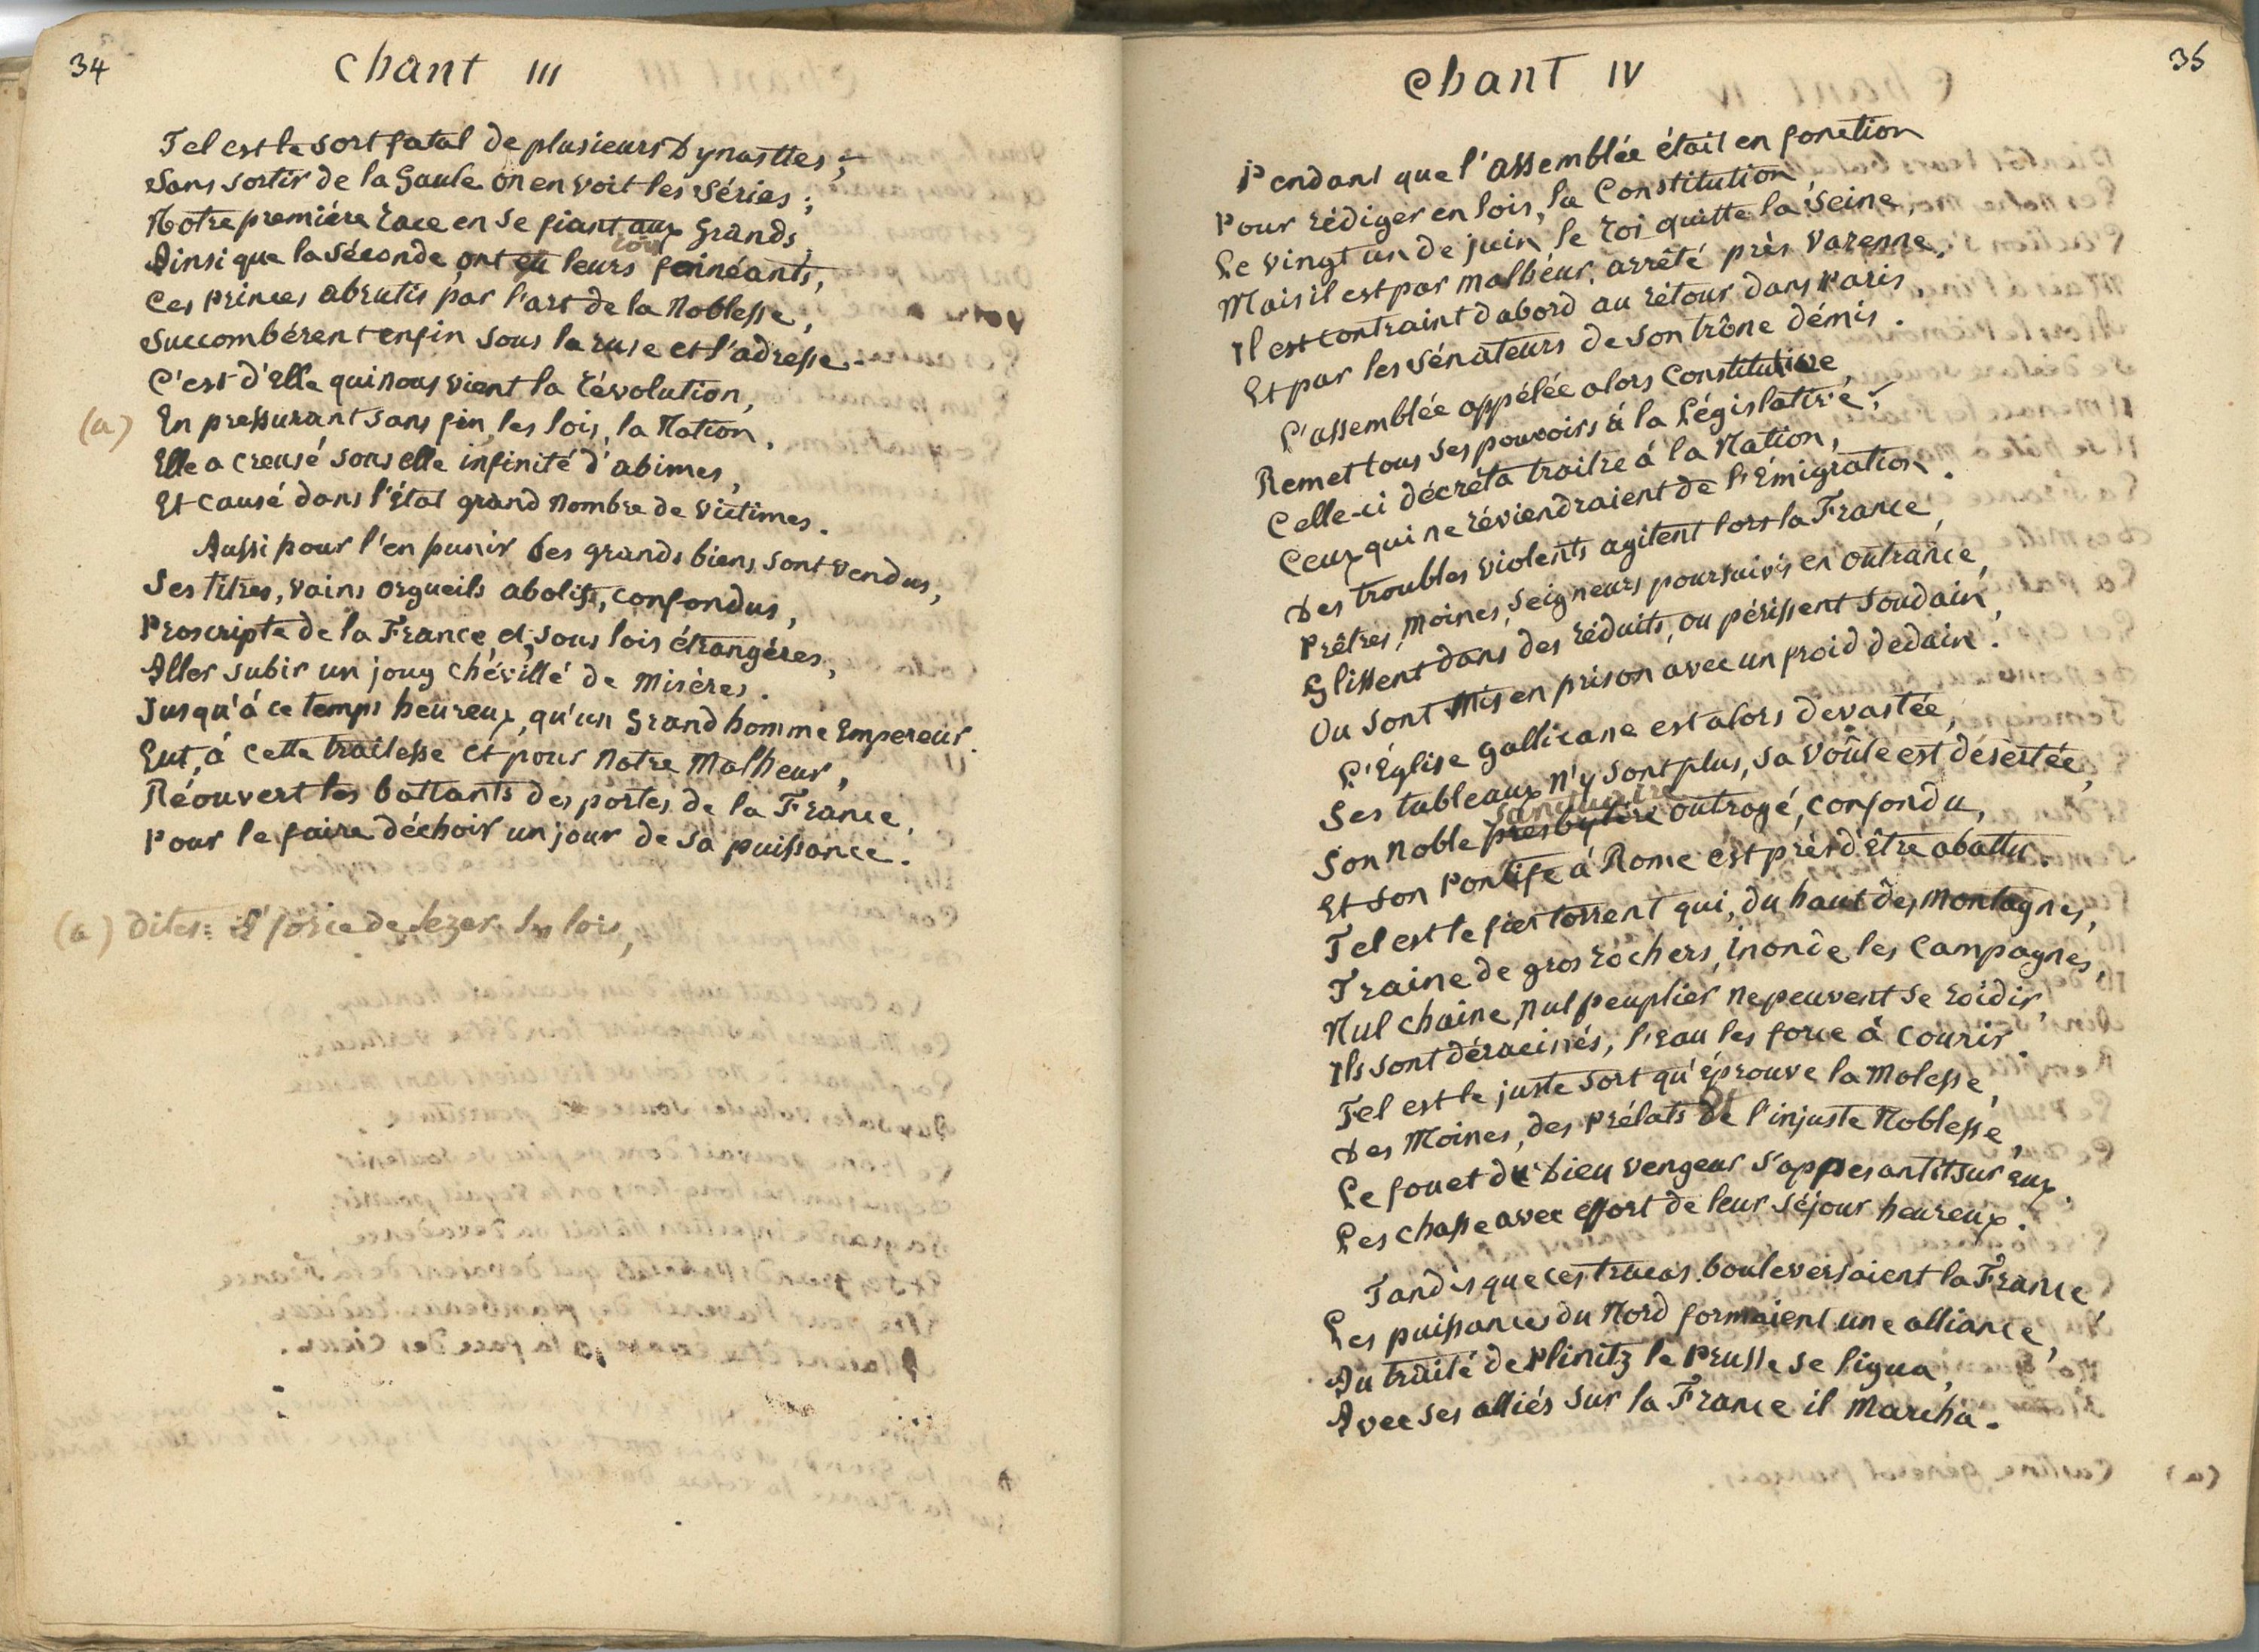 34
Chant III
Tel est le sort fatal de plusieurs Dynasties;
Sans sortir de la Gaule on en voit les séries;
Notre premiére race en se fiant aux Grands,
rois
Ainsi que la séconde, ont eu leurs fainéants,
Ces princes abrutis par l'art de la Noblesse,
Succombérent enfin sous la ruse et l'adresse.
C'est d'Elle qui nous vient la révolution,
(a) En pressurant sans fin, les lois, la Nation,
Elle a creusé sous elle infinité d'abimes,
Et causé dans l'État grand nombre de victimes.
Aussi pour l'en punir ses grands biens sont vendus,
Ses titres, vains orgueils abolis, confondus,
Proscripte de la France, et, sous lois étrangéres,
Aller subir un joug chévillé de misères.
Jusqu'á ce temps heureux, qu'un Grand homme Empereur
Eut, á cette traitesse et pour notre Malheur,
Réouvert les battants des portes de la France,
Pour le faire déchoir un jour de sa puissance.
(a) Dites: à force de lezer les lois,
35
Chant IV
Pendant que l'assemblée était en fonction
Pour rédiger en lois, la Constitution,
Le vingt un de juin, le roi quitte la Seine,
Mais il est par malhéur, arrêté près Varenne,
Il est contraint dabord au rétour dans Paris,
Et par les sénateurs de son trône démis.
L'assemblée appélée alors Constitutive,
Remet tous ses pouvoirs á la Législative;
Celle-ci décréta traitre á la Nation,
Ceux qui ne réviendraient de l'Émigration.
Des troubles violents agitent lors la France,
Prêtres, moines, seigneurs poursuivis en outrance,
Glissent dans des réduits, ou périssent soudain,
Ou sont mis en prison avec un froid dedain.
L'Église gallicane est alors devastée,
Ses tableaux n'y sont plus, sa voûte est désertée,
sanctuaire
Son Noble presbytère outragé, confondu,
Et son Pontife á Rome est près d'être abattu.
Tel est le fier torrent qui, du haut des montagnes,
Traine de gros rochers, inonde les campagnes,
Nul chaine, nul peuplier ne peuvent se roidir,
Ils sont déracinés, l'eau les force á courir.
Tel est le juste sort qu'éprouve la Molesse,
et
Des Moines, des prélats de l'injuste Noblesse,
Le fouet du Dieu vengeur s'appesantit sur eux,
Les chasse avec effort de leur séjour heureux.
Tandis que ces tracas bouleversaient la France
Les puissances du Nord formaient une alliance,
Au traité de Plinitz le Prusse se ligua,
Avec ses alliés sur la France il marcha.